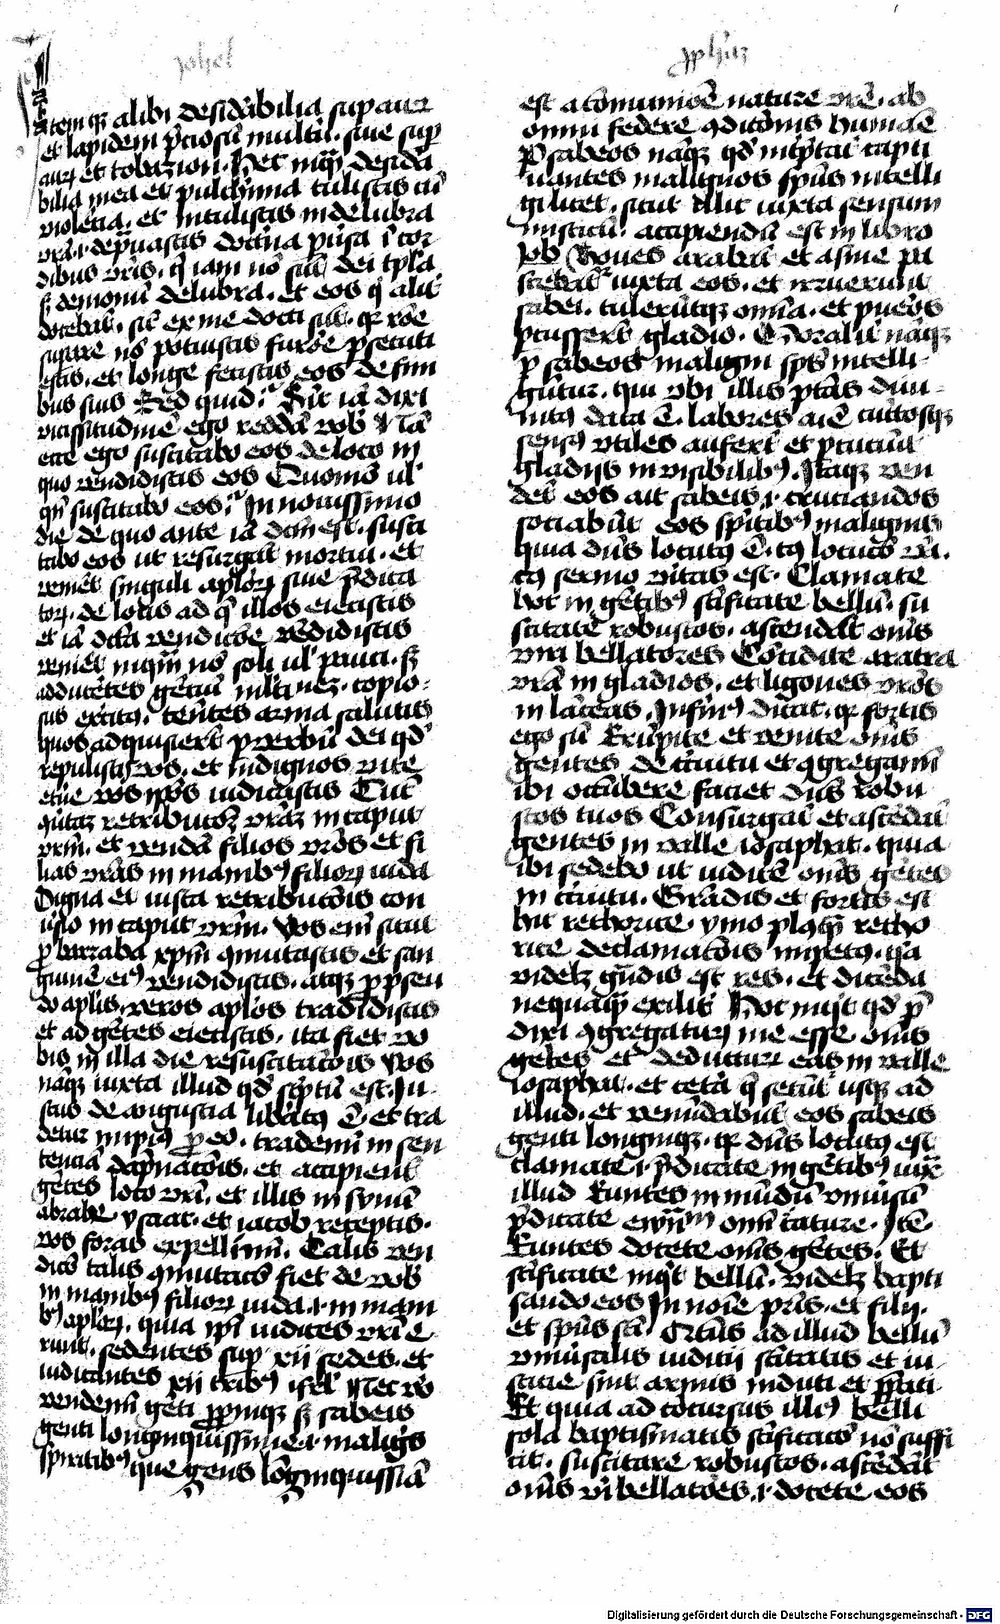 Johel
Item qz alibi desid'abilia sup aur
et lapidem p'ciosu multu. siue sup
auru et tobazion. Hec inqm desid'a
bilia mea et pulch'rima tulistis cu
violetia. et intulistis in delubra
vra. i. dep'uastis doct'ina p'usa i cor
dibus vris. q iam no sut dei tp'la
sz demonu delubra. et eos q alit
docebat. sic ex me docti sut. qz roe
supare no potuistis furoe p'secuti
estis. et longe fecistis eos de fini
bus suis Sed quid? Sic ia dixi
vicissitudine ego redda vob
ecce ego suscitabo eos de loco in
quo vendidistis eos Quomo ul'
qn suscitabo eos? In nouissimo
die de quo ante ia dcm est. susci
tabo eos ut resurgat mortui. et
veniet singuli aplor siue p'dica
tor. de locis ad q illos eiecistis
et ia dcta vendicoe vedidistis
veniet inqm no soli ul' pauci. sz
adducetes gentiu copio
sus exercitus. tenetes arma salutis
quos adquisiert p verbu dei qd
repulistis vos. et indignos vite
etne vos ipos iudicastis Tuc
qtaz retributoz vraz in caput
vrm. et venda filios vros et fi
lias vras in manibs filior iuda
Digna et iusta retributois con
uersio in caput vrm. Vos em sicut
p barraba xpm gmutastis et san
guine eis vendidistis. atqz p pseu
do aplis. veros aplos tradidistis
et ad getes eiecistis. ita fiet vo
bis in illa die resuscitatois Vos
naqz iuxta illud qd sc'ptu est. Iu
stus de angustia lib'atus e. et tra
detur impius p eo. trademi in sen
tencia dapnatois. et accipient
getes loco vri. et illis in synu
abrahe ysaac. et iacob receptis.
vos foras expellimi. Talis ven
dicio talis gmutacio fiet de vob
in manibs filior iuda. i. in mani
bs aplor. quia ipi iudices vri e
runt. sedentes sup xii sedes. et
iudicantes xii tribs isrl Nec vo
vendem geti ppinqz sz sabeis
genti longinquissime. i. malignis
spiritibs que gens longinquissia
Jpheta
est a comunioe nature vre. ab
omni federe gditionis humae
Per sabeos naqz qd intptat capti
uantes malignos spus intelli
gi licet. sicut illic iuxta sensum
misticu. accipiendu est in libro
Job Boues arabat et asine pa
scebat iuxta eos. et irruerunt
sabei. tulerutqz omia. et pueros
pcussert gladio. Moralit naqz
p sabeos maligni sps intelli
gutur. qui vbi illis ptas diui
nitus data e. labores aie cuctosqz
sensus vtiles aufert et pcutiut
gladijs inuisibilibs. Itaqz ven
det eos ait sabeis. i. cruciandos
sociabut eos spitibs malignis
quia dns locutus e. cuius locuto vri.
cuius sermo vitas est. Clamate
hoc in getibs scificate bellu. su
scitate robustos. ascendat oms
viri bellatores Concidite aratra
vra in gladios. et ligones vros
in laceas. Infirmus dicat. qz fortis
ego su Erupite et venite oms
gentes de circuitu et ggregamini
ibi occubere faciet dns robu
stos tuos Consurgat et ascedat
gentes in valle iosaphat. quia
ibi sedebo ut iudice oms getes
in circuitu. Gradis et fortis est
hic rethorice. ymo plusqm retho
rice declamatois impetus. qa
videlz gndis est res. et dicenda
nequaqm exilit Hoc inqt qd p
dixi ggregaturu me esse oms
getes et deducturu eas in valle
iosaphat. et cetera q secut usqz ad
illud. et venudabut eos sabeis
genti longinqz. qz dns locutus est
clamate. i. p'dicate in getibs iuxta
illud Euntes in mudu vniusu
p'dicate ewangeliu omi c'ature. Ite
Euntes docete oms getes. Et
scificate inqt bellu. videlz bapti
sando eos In noie pris. et filij.
et spus sci. Quibus ad illud bellu
vniusalis iudicii scitatis et iu
sticie sint armis induti et pparati
Et quia ad concursus illius belli
sola baptismatis scificatio no suffi
cit. suscitare robustos. ascedat
oms viri bellatores. i. docete eos
Digitalisierung gefördert durch die Deutsche Forschungsgemeinschaft - DFG